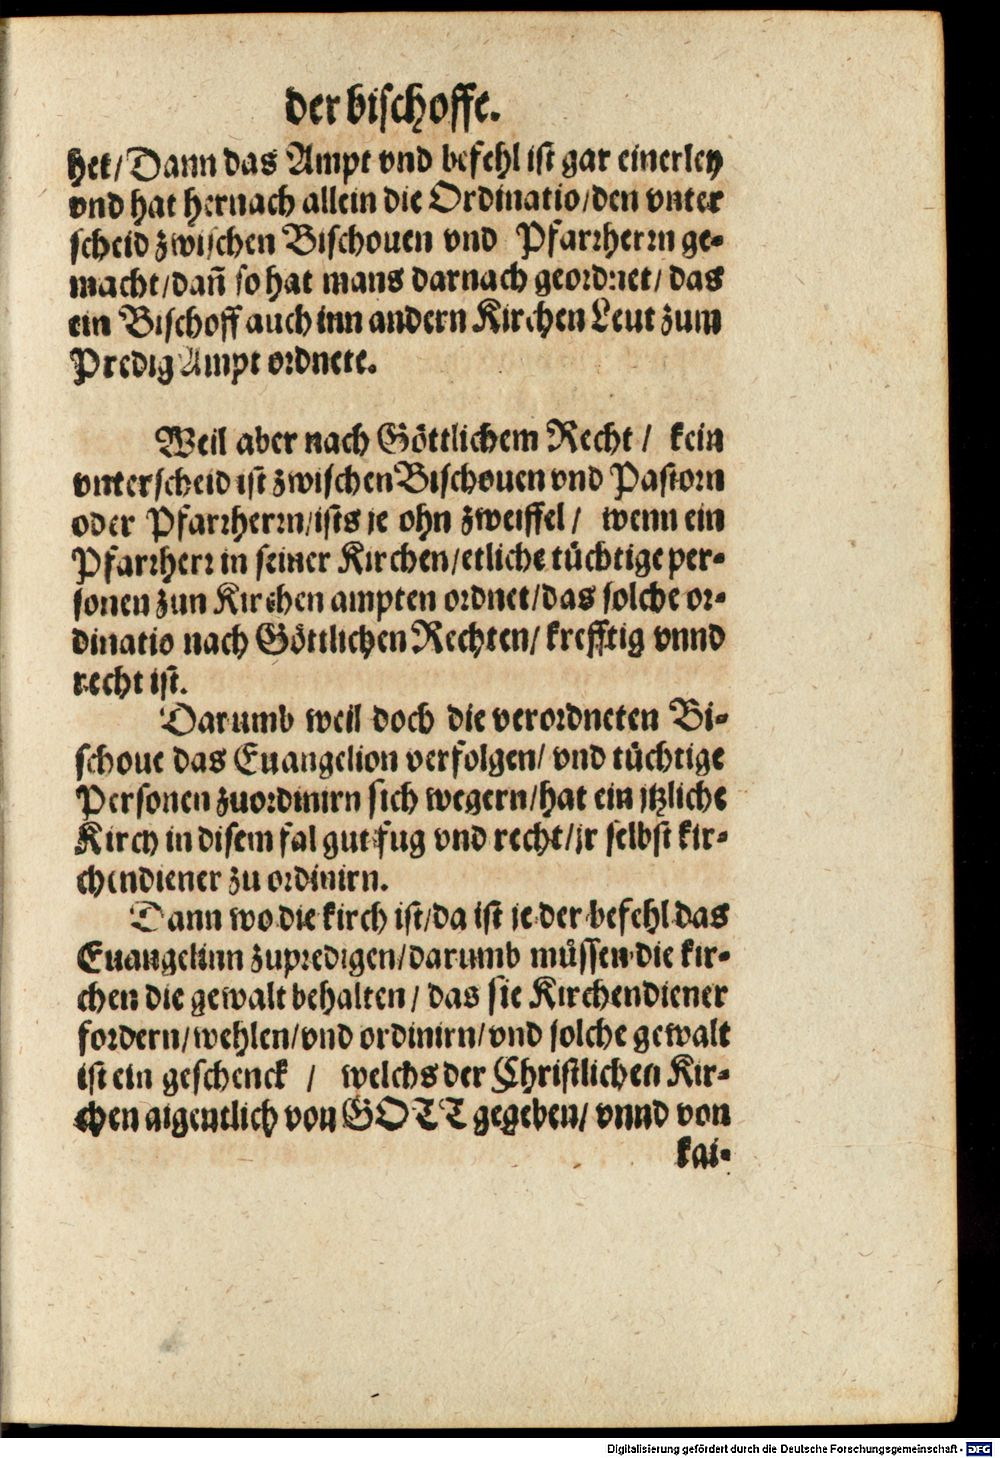 der bischoffe.
het/Dann das Ampt vnd befehl ist gar einerley
vnd hat hernach allein die Ordinatio/den vnter
scheid zwischen Bischouen vnd Pfarrherrn ge-
macht/dañ so hat mans darnach geordnet/das
ein Bischoff auch inn andern Kirchen Leut zum
Predig Ampt ordnete.
Weil aber nach Göttlichem Recht/ kein
vnterscheid ist zwischen Bischouen vnd Pastorn
oder Pfarrherrn/ists je ohn zweiffel/ wenn ein
Pfarrherr in seiner Kirchen/etliche tüchtige per-
sonen zun Kirchen ampten ordnet/das solche or-
dinatio nach Göttlichen Rechten/krefftig vnnd
recht ist.
Darumb weil doch die verordneten Bi-
schoue das Euangelion verfolgen/vnd tüchtige
Personen zuordinirn sich wegern/hat ein jtzliche
Kirch in disem fal gut fug vnd recht/jr selbst kir-
chendiener zu ordinirn.
Dann wo die kirch ist/da ist je der befehl das
Euangelium zupredigen/darumb müssen die kir-
chen die gewalt behalten/das sie Kirchendiener
fordern/wehlen/vnd ordinirn/vnd solche gewalt
ist ein geschenck / welchs der Christlichen Kir-
chen aigentlich von GOTT gegeben/vnnd von
kai-
Digitalisierung gefördert durch die Deutsche Forschungsgemeinschaft - DFG